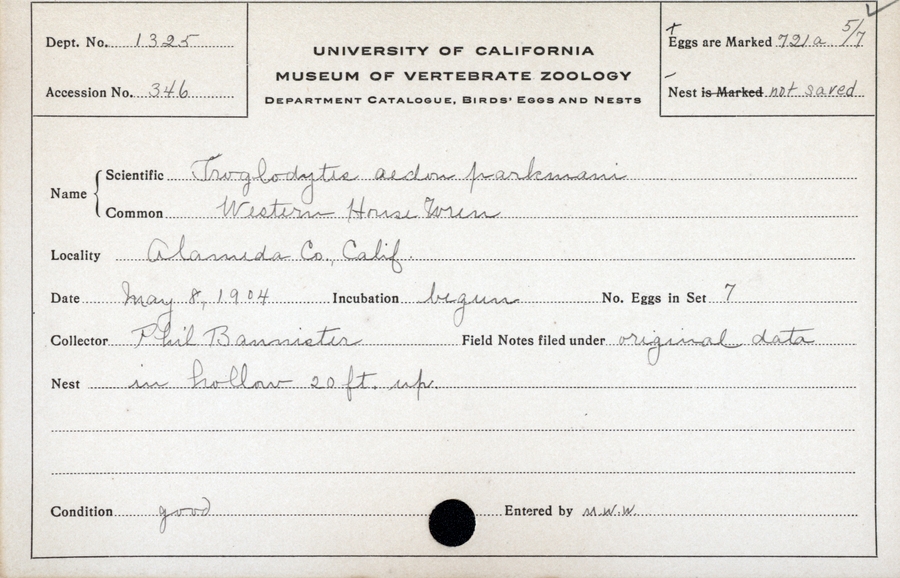 Dept. No. 1325
Accession No. 346
UNIVERSITY OF CALIFORNIA
MUSEUM OF VERTEBRATE ZOOLOGY
DEPARTMENT CATALOGUE, BIRDS' EGGS AND NESTS
Eggs are Marked 721a 5/7
Nest is Marked not saved
Name
Scientific Troglodytes aedon parkmani
Common Western House Wren
Locality Alameda Co., Calif.
Date May 8, 1904 Incubation begun No. Eggs in Set 7
Collector Phil Bannister Field Notes filed under original data
Nest in hollow 20 ft. up.
Condition good Entered by M.W.W.